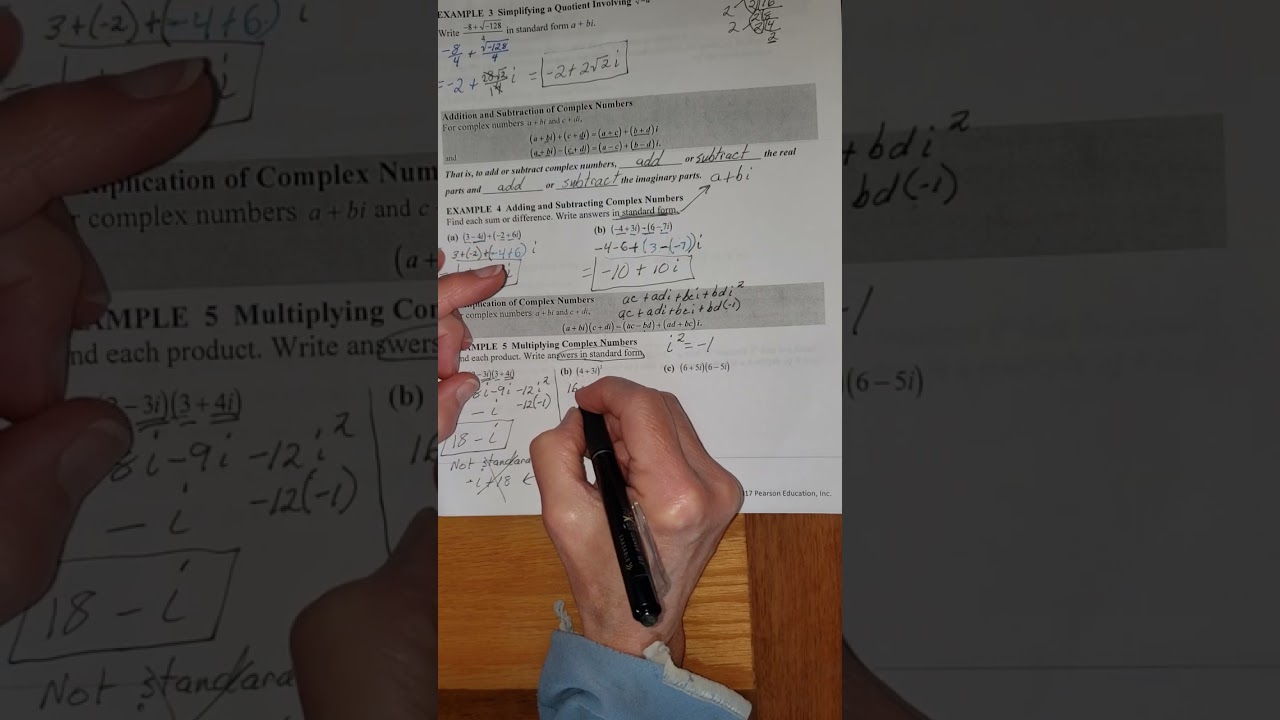 EXAMPLE 3 Simplifying a Quotient Involving
Write (-8+√-128)/4 in standard form a + bi.
-8/4 + √-128/4
= -2 + 8√2/4 i = -2+2√2 i
Addition and Subtraction of Complex Numbers
For complex numbers a + bi and c + di,
(a + bi) + (c + di) = (a + c) + (b + d) i
and (a + bi) – (c + di) = (a – c) + (b – d) i.
That is, to add or subtract complex numbers, add or subtract the real
parts and add or subtract the imaginary parts. a+bi
EXAMPLE 4 Adding and Subtracting Complex Numbers
Find each sum or difference. Write answers in standard form.
(a) (3 – 4i) + (–2 + 6i) (b) (–4 + 3i) – (6 – 7i)
3+(-2)+(-4+6) i -4-6+(3-(-7))i
i = -10 + 10i
plication of Complex Numbers ac+adi+bci+bdi²
complex numbers a + bi and c + di, ac+adi+bci+bd(-1)
(a + bi)(c + di) = (ac – bd) + (ad + bc) i.
MPLE 5 Multiplying Complex Numbers i²=-1
nd each product. Write answers in standard form.
– 3i)(3 + 4i) (b) (4 + 3i)² (c) (6 + 5i)(6 – 5i)
8i-9i-12i² 16
- i -12(-1)
18 - i
Not standard
-i+18
17 Pearson Education, Inc.